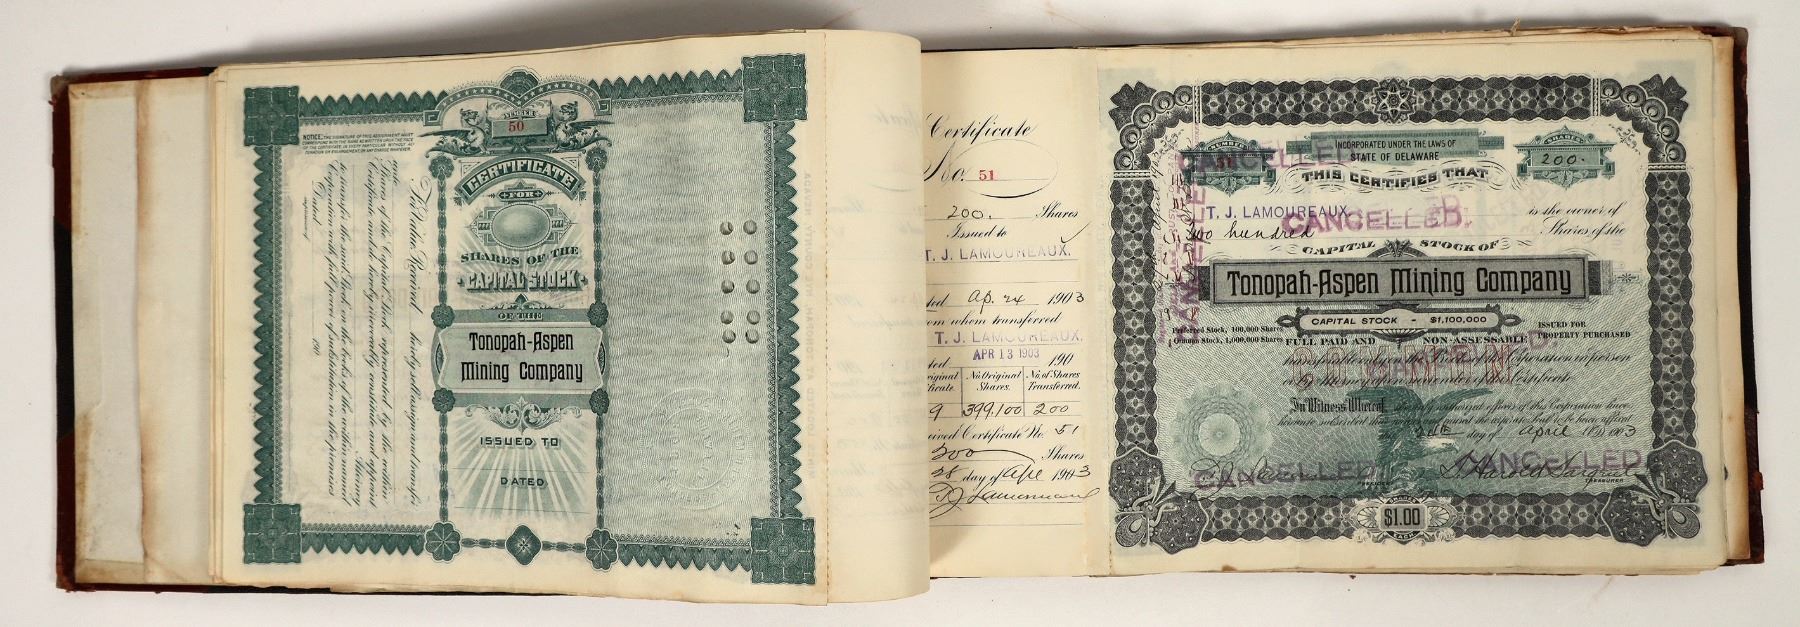 NUMBER
50
CERTIFICATE
FOR
SHARES OF THE
CAPITAL STOCK
OF THE
Tonopah-Aspen
Mining Company
ISSUED TO
DATED
NOTICE: THE SIGNATURE OF THIS ASSIGNMENT MUST
CORRESPOND WITH THE NAME AS WRITTEN UPON THE FACE
OF THE CERTIFICATE, IN EVERY PARTICULAR WITHOUT AL-
TERATION OR ENLARGEMENT, OR ANY CHANGE WHATEVER.
For Value Received hereby sell, assign and transfer
unto
Shares of the Capital Stock represented by the within
Certificate and do hereby irrevocably constitute and appoint
Attorney
to transfer the said Stock on the books of the within named
Corporation with full power of substitution in the premises
Dated 190
Certificate
No. 51
200. Shares
Issued to
T. J. LAMOUREAUX.
ted Ap. 24 1903
om whom transferred
T. J. LAMOUREAUX.
APR 13 1903
ted 190
No. Original
Shares.
No. of Shares
Transferred.
9 399,100 200
eived Certificate No. 51
200 Shares
28 day of Apl 1903
NUMBER
51
INCORPORATED UNDER THE LAWS OF
STATE OF DELAWARE
SHARES
200.
THIS CERTIFIES THAT
T. J. LAMOUREAUX is the owner of
CANCELLED.
Two hundred Shares of the
CAPITAL STOCK OF
Tonopah-Aspen Mining Company
CAPITAL STOCK - $1,100,000
Preferred Stock, 100,000 Shares
Common Stock, 1,000,000 Shares
FULL PAID AND NON-ASSESSABLE
ISSUED FOR
PROPERTY PURCHASED
transferable only on the Books of the Corporation in person
or by Attorney upon surrender of this Certificate.
In Witness Whereof,
the 24th day of April A.D. 1903
CANCELLED
CANCELLED
PRESIDENT
TREASURER
SHARES
$1.00
EACH